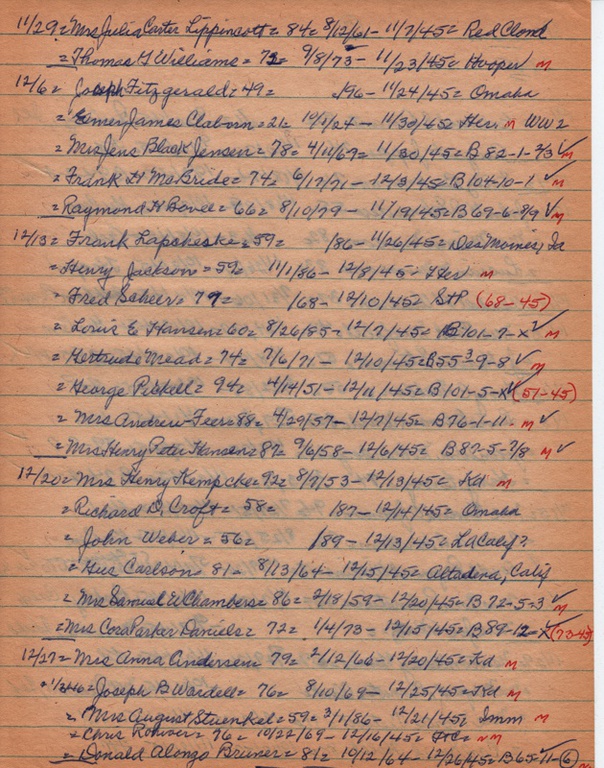 11/29 = Mrs Julia Carter Lippincott = 84 = 8/12/61 - 11/7/45 = Red Cloud
= Thomas G Williams = 72 = 9/8/73 - 11/23/45 = Hooper M
12/6 = Joseph Fitzgerald = 49 = /96 - 11/24/45 = Omaha
= Elmer James Claborn = 21 = 10/1/24 - 11/30/45 = Her. M WW2
= Mrs Jens Black Jensen = 78 = 4/11/67 = 11/30/45 = B 82-1-2/3 ✓ M
= Frank H McBride = 74 = 6/17/71 - 12/3/45 = B 104-10-1 ✓ M
= Raymond H Bovee = 66 = 8/10/79 - 11/19/45 = B 69-6-8/9 ✓ M
12/13 = Frank Lapcheske = 59 = /86 - 11/26/45 = Des Moines, Ia
= Henry Jackson = 59 = 11/1/86 - 12/8/45 = Her M
= Fred Scheer = 77 = /68 - 12/10/45 = StP (68-45)
= Louis E Hansen = 60 = 8/26/85 - 12/7/45 = B 101-7-X ✓ M
= Gertrude Mead = 74 = 7/6/71 - 12/10/45 = B 553-9-8 ✓ M
= George Pickell = 94 = 4/14/51 - 12/11/45 = B 101-5-X ✓ (51-45)
= Mrs Andrew Feer = 88 = 4/29/57 - 12/7/45 = B 76-1-11 - M ✓
= Mrs Henry Peter Hansen = 87 = 9/6/58 - 12/6/45 = B 87-5-7/8 M ✓
12/20 = Mrs Henry Kempcke = 92 = 8/7/53 - 12/13/45 = Kd M
= Richard D. Croft = 58 = /87 - 12/14/45 = Omaha
= John Weber = 56 = /89 - 12/13/45 = La Calif?
= Gus Carlson = 81 = 8/13/64 - 12/15/45 = Altadena, Calif
= Mrs Samuel W Chambers = 86 = 2/18/59 - 12/20/45 = B 72-5-3 ✓ M
= Mrs Cora Parker Daniels = 72 = 1/4/73 - 12/15/45 = B 89-12-X ✓ (73-45)
12/27 = Mrs Anna Andersen 79 = 2/12/66 - 12/20/45 = Kd M
= 1/3/46 = Joseph B Wardell = 76 = 8/10/69 - 12/25/45 = Kd M
= Mrs August Stuenkel = 59 = 3/1/86 - 12/21/45 = Imm M
= Chris Rohwer = 76 = 10/22/69 - 12/16/45 = HC = NM
= Donald Alonzo Bruner = 81 = 10/12/64 - 12/26/45 = B 65-11-6